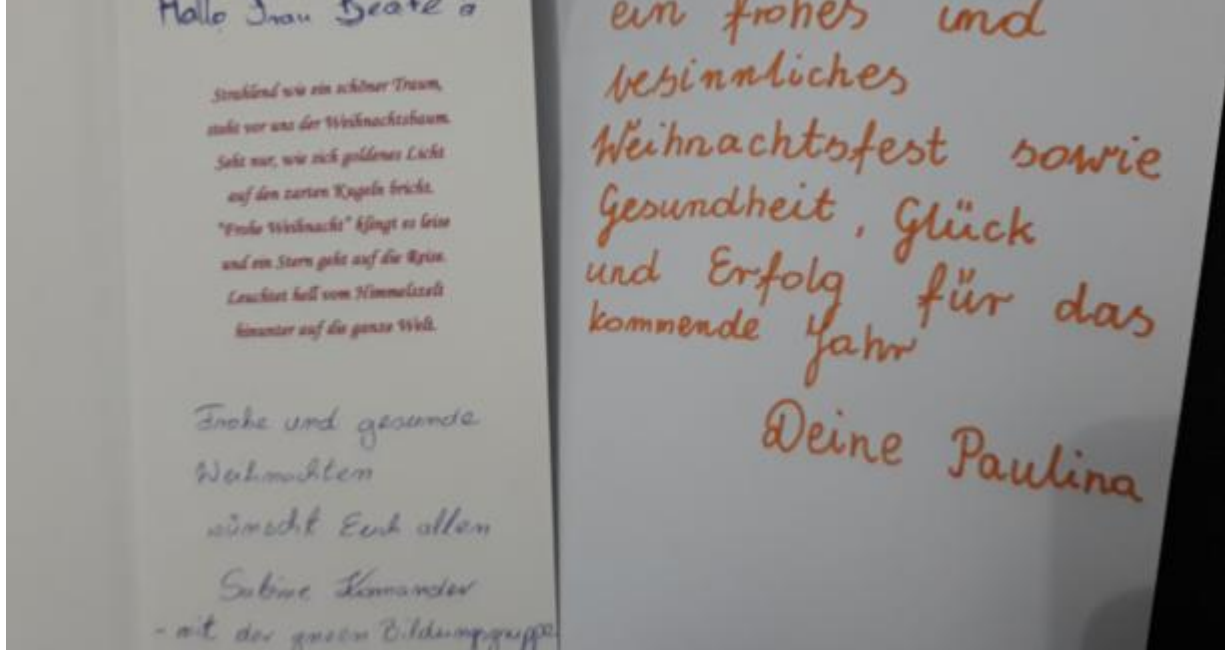 Hallo Frau Beate
Strahlend wie ein schöner Traum,
steht vor uns der Weihnachtsbaum.
Seht nur, wie sich goldenes Licht
auf den zarten Kugeln bricht.
"Frohe Weihnacht" klingt es leise
und ein Stern geht auf die Reise.
Leuchtet hell vom Himmelszelt
hinunter auf die ganze Welt.
Frohe und gesunde
Weihnachten
wünscht Euch allen
Sabine Komander
- mit der Bildungsgruppe
ein frohes und
besinnliches
Weihnachtsfest sowie
Gesundheit, Glück
und Erfolg für das
kommende Jahr
Deine Paulina